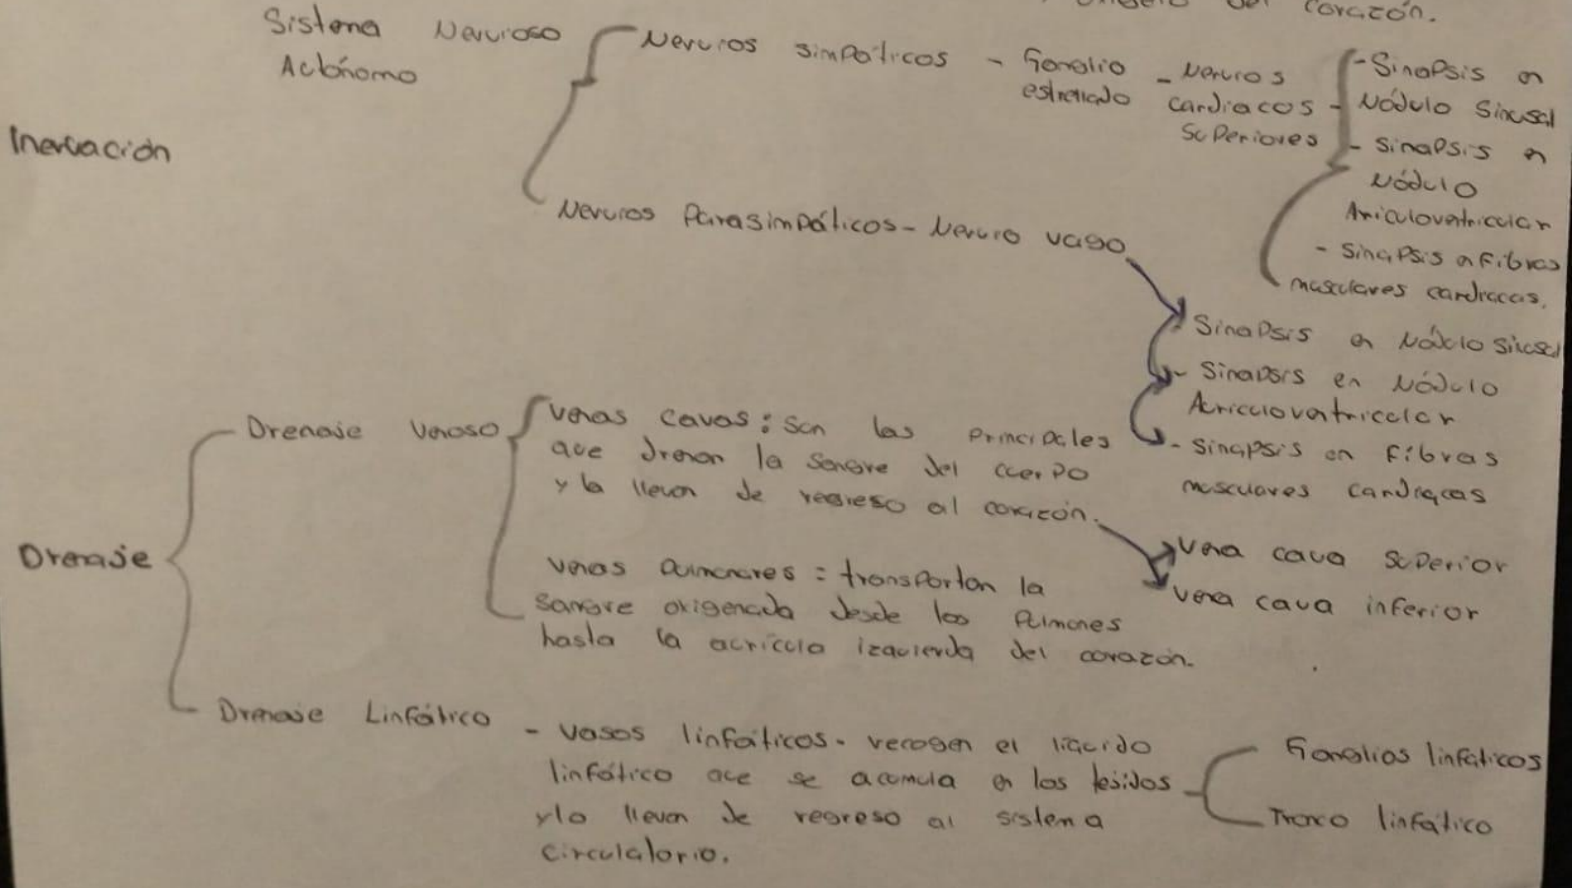 del corazón.
Sistema Nervioso
Autónomo
Inervación
Nervios simpáticos - Ganglio
estrellado
- Nervios
cardiacos -
Superiores
- Sinapsis en
Nódulo Sinusal
- Sinapsis en
Nódulo
Auriculoventricular
- Sinapsis en fibras
musculares cardiacas.
Nervios Parasimpáticos - Nervio vago
Sinapsis en Nódulo sinusal
- Sinapsis en Nódulo
Auriculoventricular
- Sinapsis en fibras
musculares cardiacas
Drenaje
Drenaje Venoso
Venas cavas: son las principales
que drenan la sangre del cuerpo
y la llevan de regreso al corazón.
Vena cava Superior
Vena cava inferior
Venas Pulmonares: transportan la
sangre oxigenada desde los Pulmones
hasta la aurícula izquierda del corazón.
Drenaje Linfático
- Vasos linfáticos - recogen el líquido
linfático que se acumula en los tejidos
y lo llevan de regreso al sistema
circulatorio.
Ganglios linfáticos
Tronco linfático